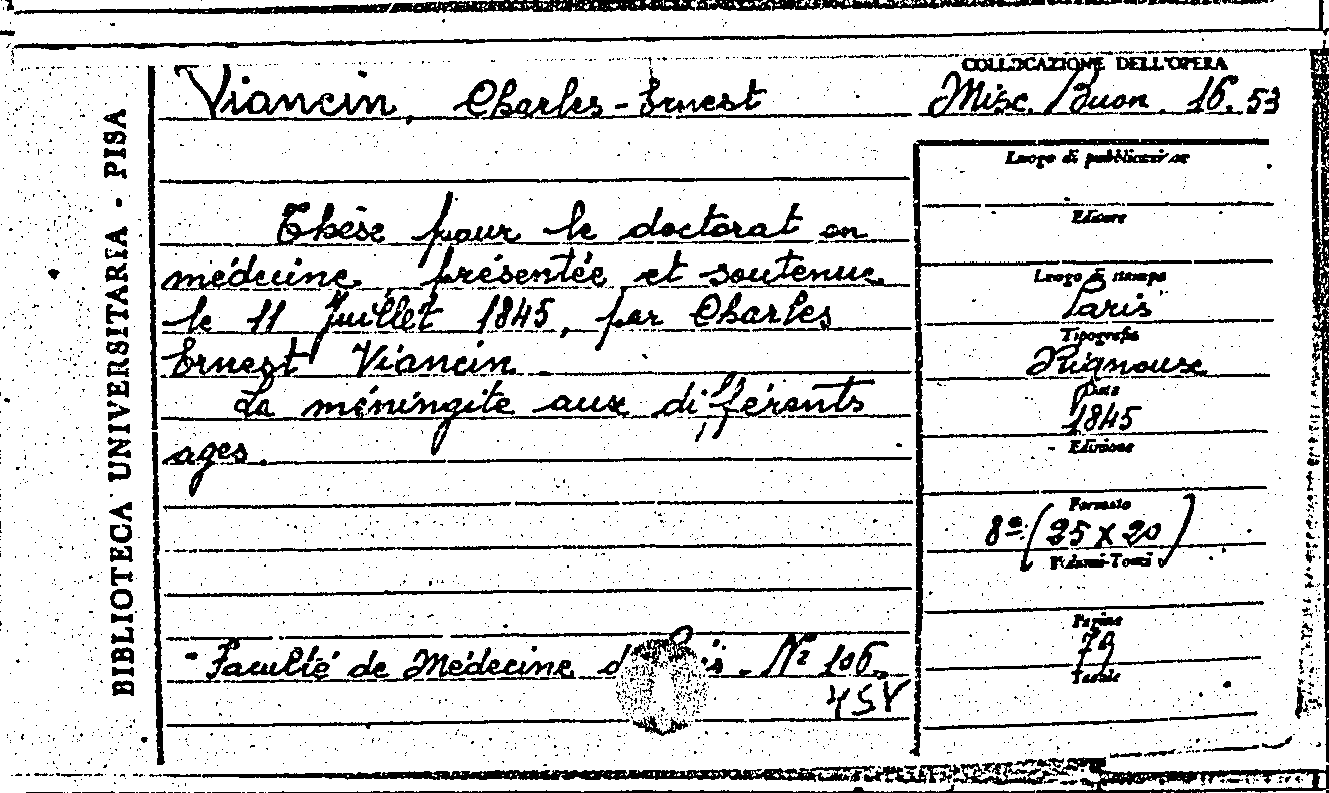 BIBLIOTECA UNIVERSITARIA - PISA
Viancin, Charles-Ernest
COLLOCAZIONE DELL'OPERA
Misc. Buon. 16. 53
Thèse pour le doctorat en
médecine, présentée et soutenue
le 11 Juillet 1845, par Charles
Ernest Viancin.
La méningite aux différents
ages.
Faculté de Médecine - N° 106.
Luogo di pubblicazione
Editore
Luogo di stampa
Paris
Tipografia
Rignoux
Data
1845
Edizione
Formato
8º (25 x 20)
Volumi-Tomi
Pagine
79
Tavole